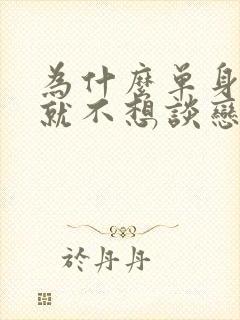 為什麼單身
就不想談戀
於丹丹